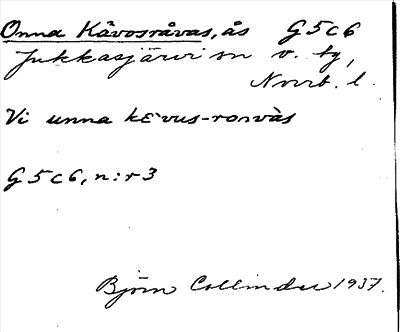 Onna Kåvosråvas, ås G5c6
Jukkasjärvi sn v. tg,
Norrb. l.
Vi unna kɛvus-rovvàs
G5c6, n:r 3
Björn Collinder 1937.